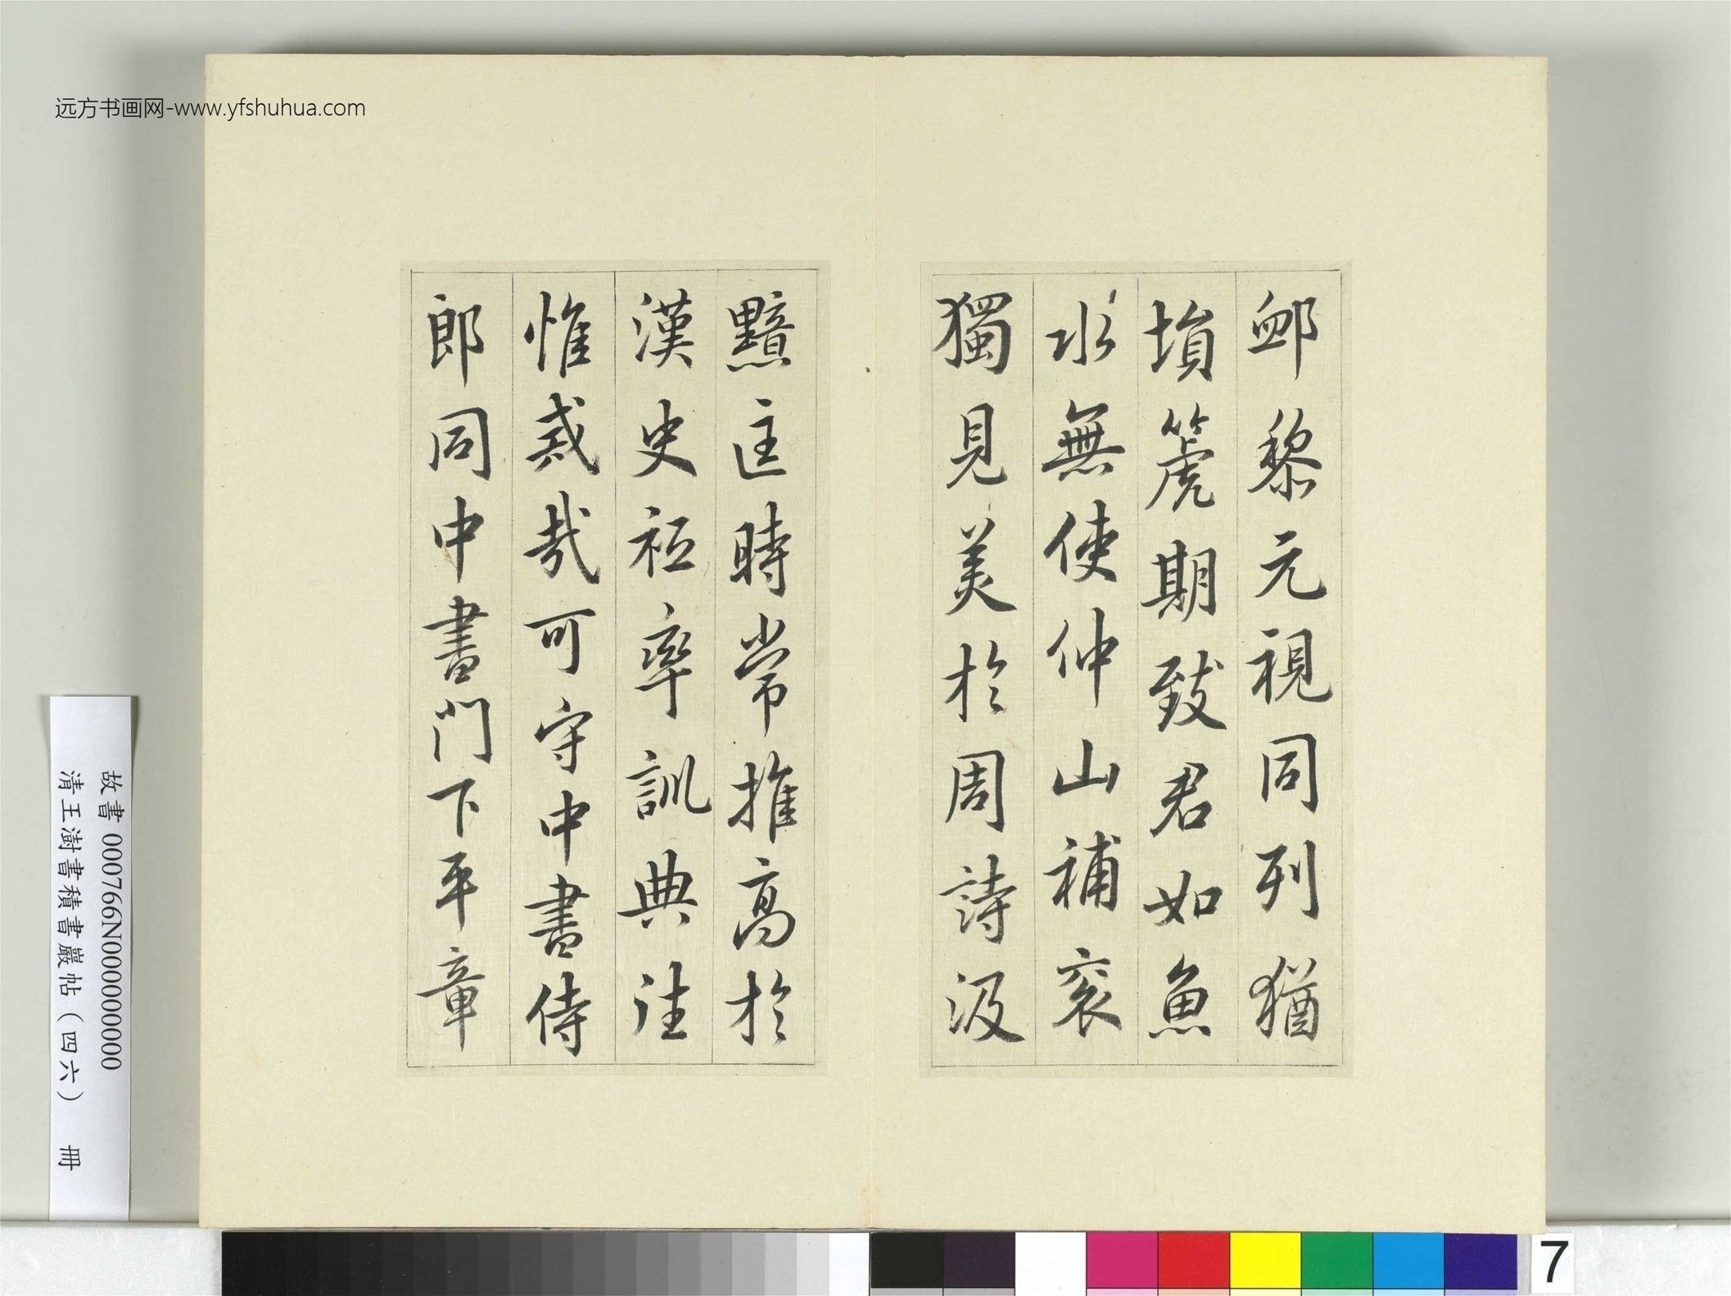 远方书画网-www.yfshuhua.com
卹黎元視同列猶
塤箎期致君如魚
水無使仲山補衮
獨見美於周詩汲
黯匡時常推高於
漢史祗率訓典往
惟戒哉可守中書侍
郎同中書門下平章
故書 000766N000000000
清王澍書積書巖帖（四六） 冊
7